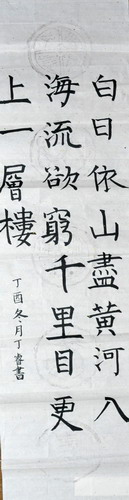 白日依山盡黄河入
海流欲窮千里目更
上一層樓
丁酉冬月丁睿書